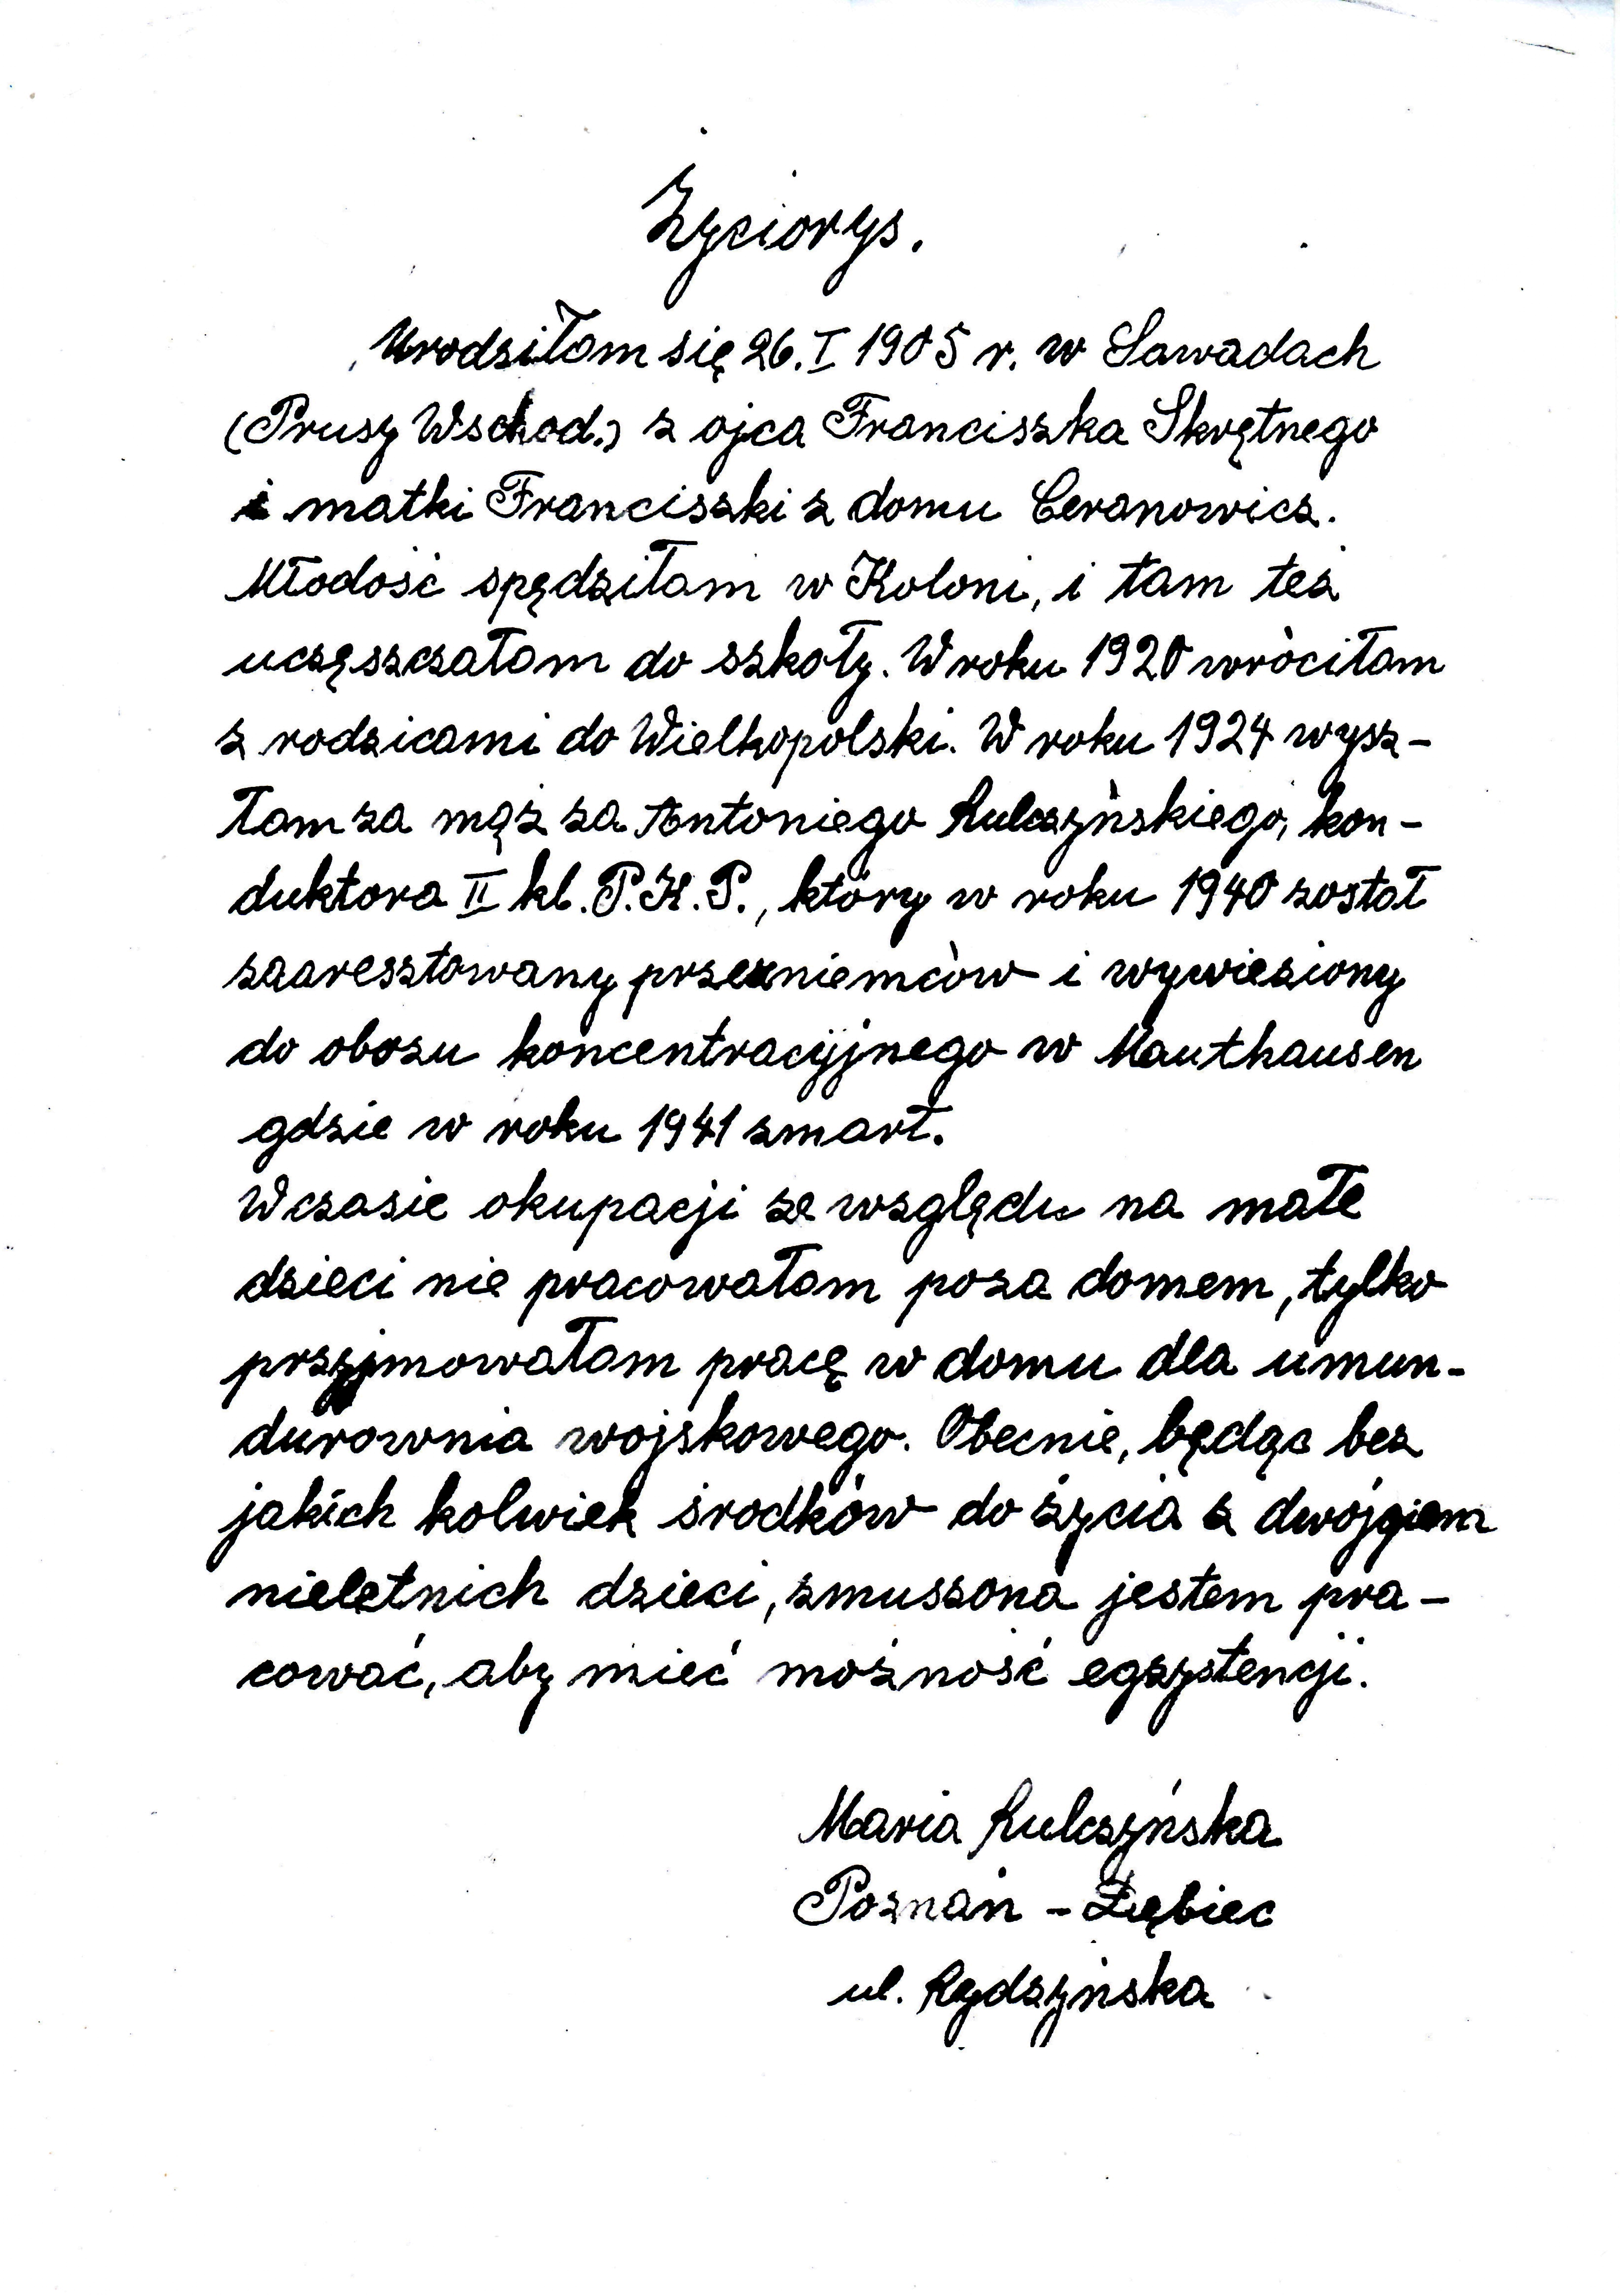 Życiorys.
Urodziłam się 26. I 1905 r. w Sawadach
(Prusy Wschod.) z ojca Franciszka Skrętnego
i matki Franciszki z domu Ceranowicz.
Młodość spędziłam w Koloni, i tam też
uczęszczałam do szkoły. W roku 1920 wróciłam
z rodzicami do Wielkopolski. W roku 1924 wysz-
łam za mąż za Antoniego Kulczyńskiego, kon-
duktora II kl. P.K.P., który w roku 1940 został
zaaresztowany przez niemców i wywieziony
do obozu koncentracyjnego w Mauthausen
gdzie w roku 1941 zmarł.
W czasie okupacji ze względu na małe
dzieci nie pracowałam poza domem, tylko
przyjmowałam pracę w domu dla umun-
durownia wojskowego. Obecnie, będąc bez
jakich kolwiek środków do życia z dwojgiem
nieletnich dzieci, zmuszona jestem pra-
cować, aby mieć możność egzystencji.
Maria Kulczyńska
Poznań - Dębiec
ul. Rydzyńska